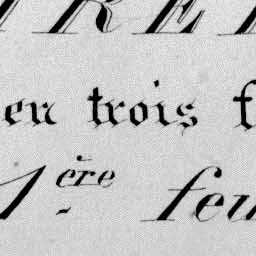 en trois
1ère feu